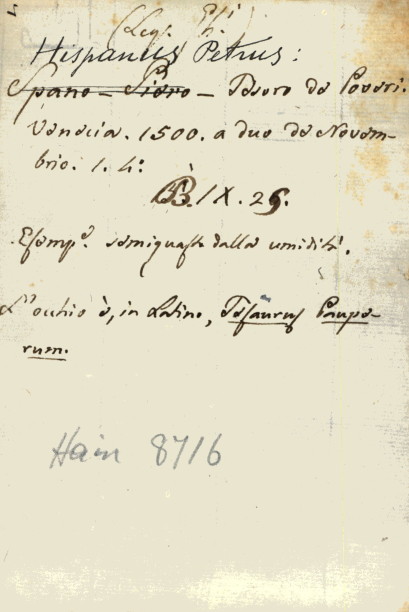 (Leg.
Hispanus Petrus:
Spano - Piero - Tesoro de Poveri.
Venecia. 1500. a due de Novem-
brio. 1. 4º:
B. IX. 25.
Esempº. semiguasto dalla umidità.
L'occhio è, in Latino, Tesaurus Paupe-
rum.
Hain 8716